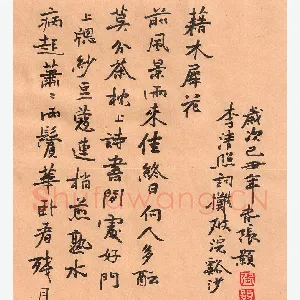 病起蕭〻兩鬢華卧看殘月
上牕紗豆蔻連梢煎熟水
莫分茶枕上詩書閒處好門
前風景雨來佳終日向人多醖
藉木犀花
李清照詞攤破浣谿沙
歲次己丑年 張顥
Shufawang.CN